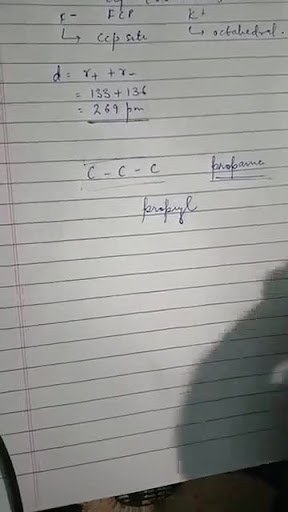 F- FCP K+
↳ ccp site ↳ octahedral.
d = r+ + r-
= 133 + 136
= 269 pm
C - C - C propane
propyl